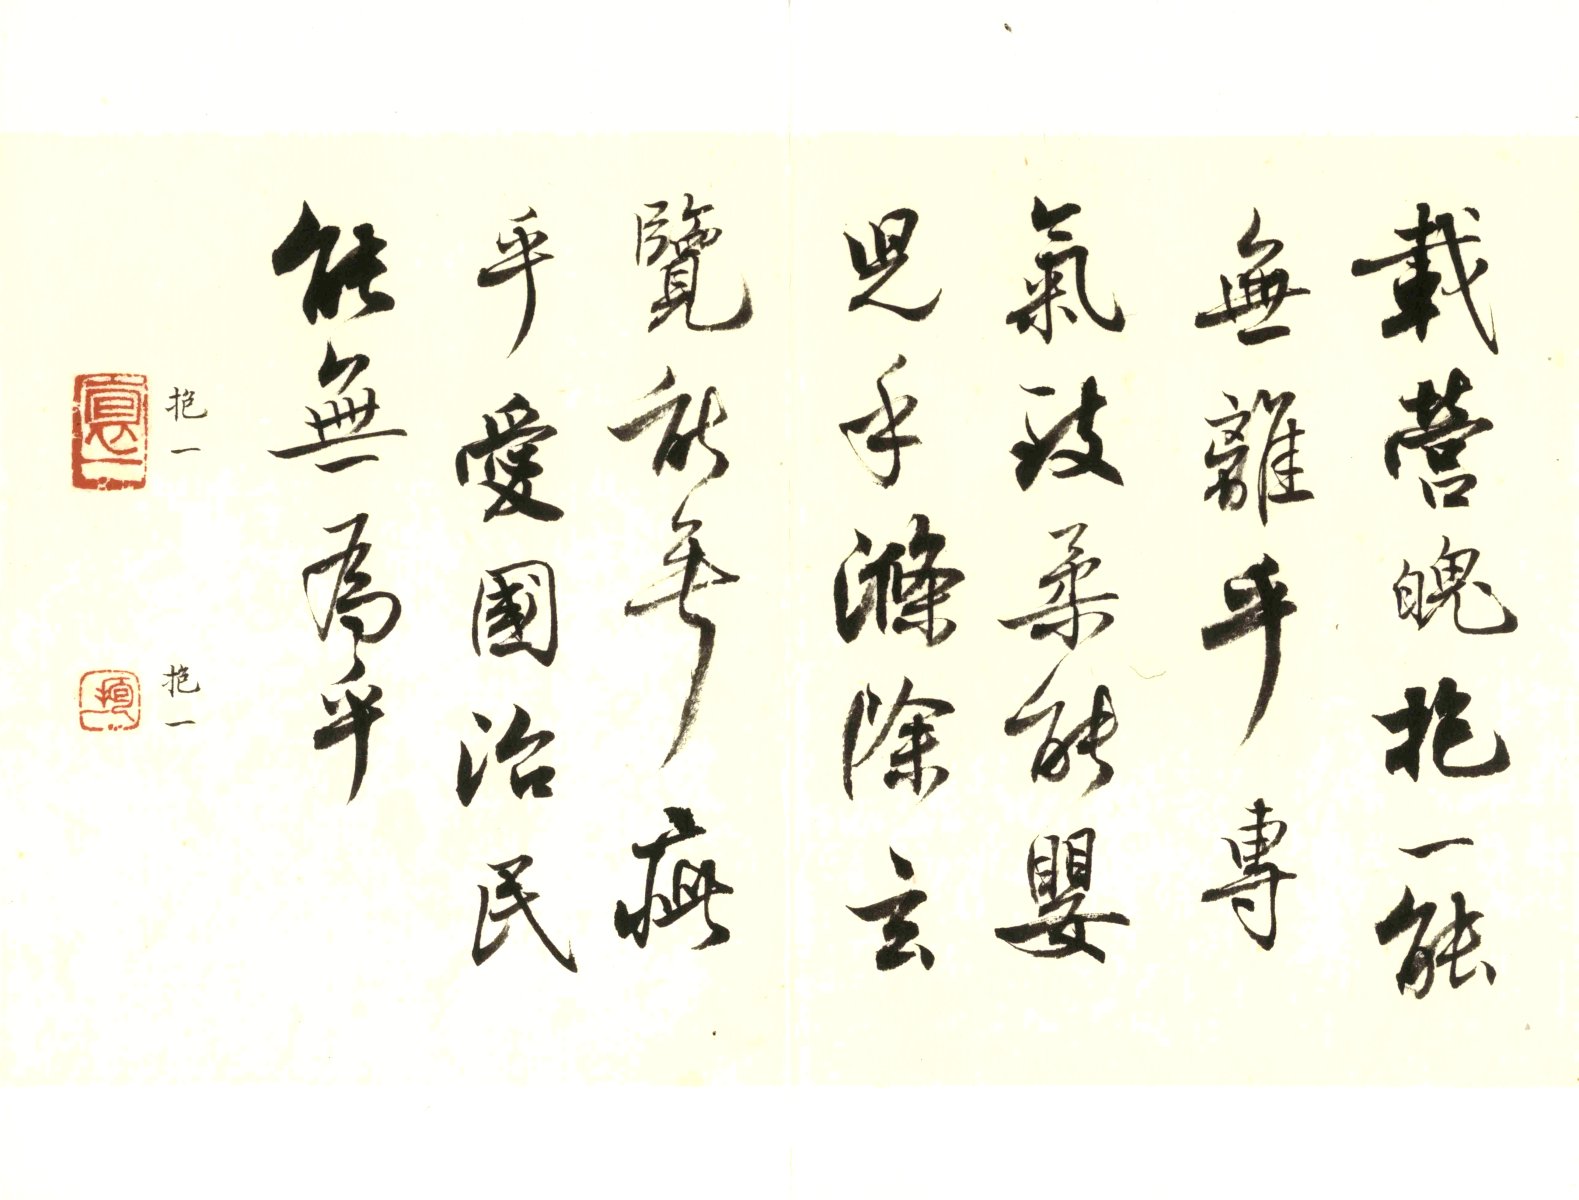 載營魄抱一能
無離乎專
氣致柔能嬰
兒乎滌除玄
覽能無疵
乎愛國治民
能無為乎
抱一
抱一